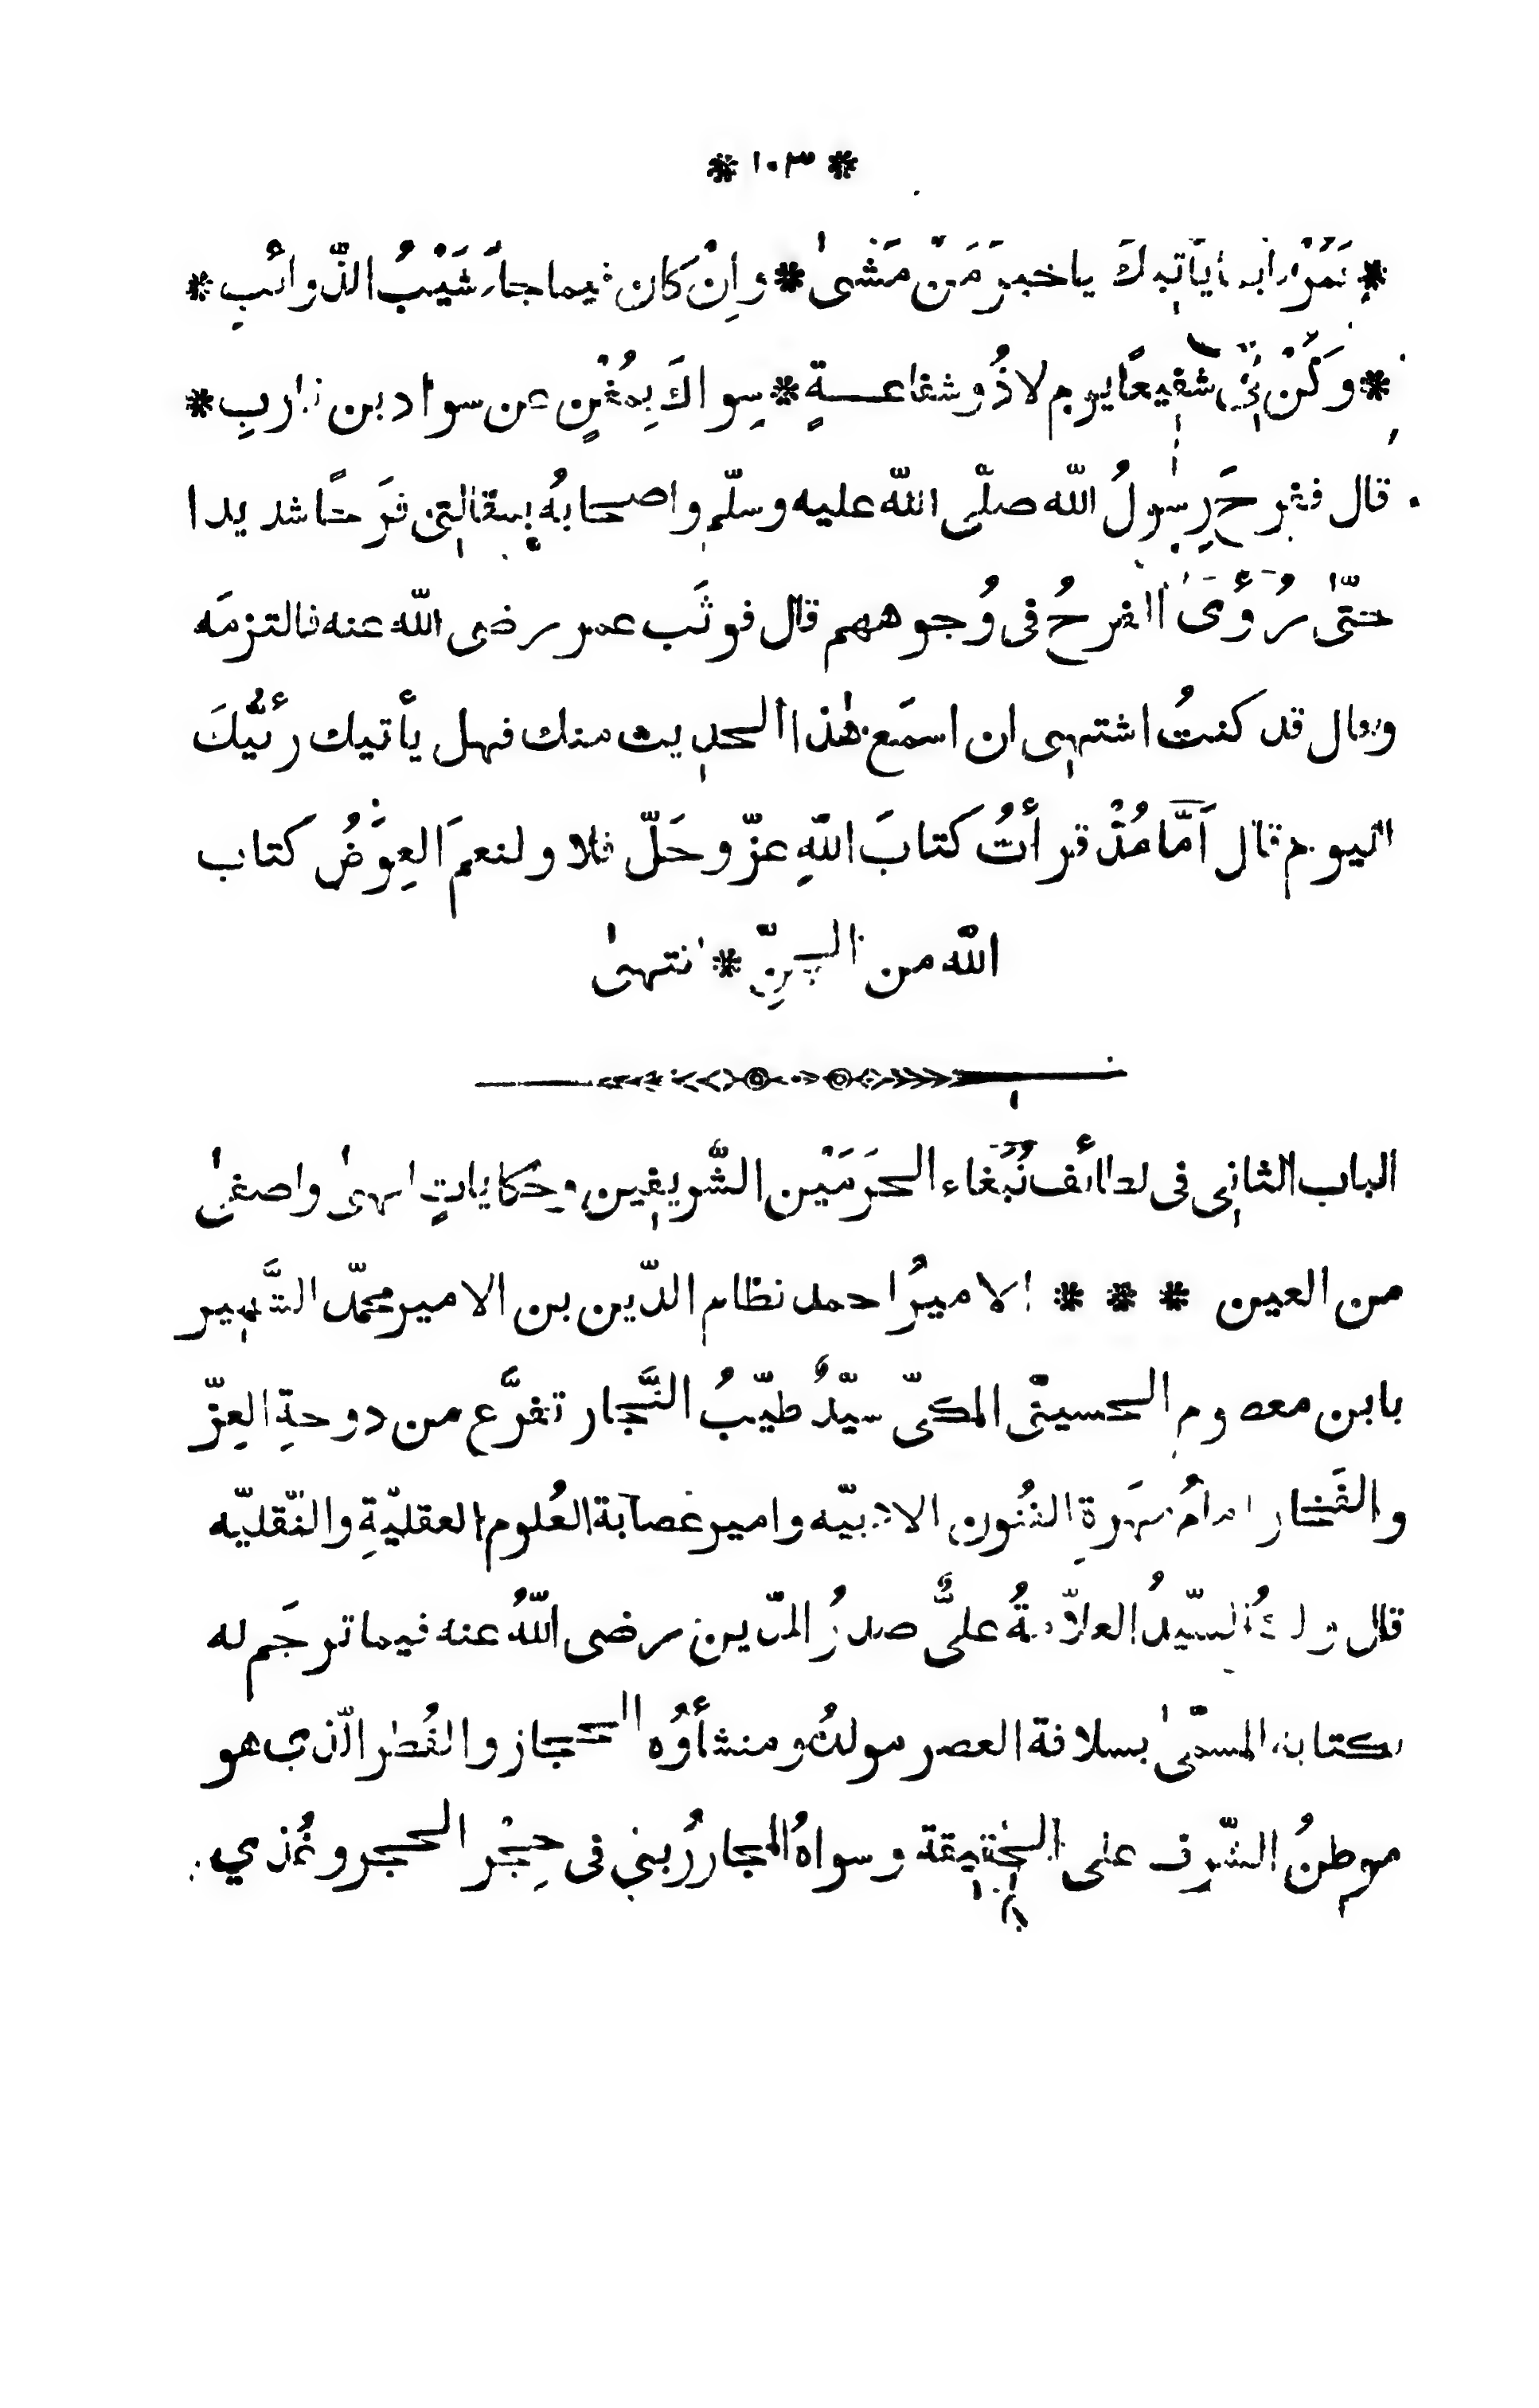 * ١٠٣ *
* فَمُرْنا بما يَأتِيكَ ياخيرَ مَنْ مَشىٰ * وإنْ كان فيما جاءَ شَيْبُ الذّوائبِ *
* وكُنْ لِىْ شفيعًا يوم لاذُو شفاعةٍ * سِواكَ بِمُغْنٍ عن سواد بن قاربِ *
قال ففرِحَ رسولُ اللّه صلّى اللّه عليه وسلّم واصحابُه بمقالتى فَرَحًا شديدا
حتّىٰ رُؤىَ الفرحُ فى وُجوههم قال فوثَب عمر رضى اللّه عنه فالتزمَه
وقال قد كنتُ اشتهى ان اسمَع هٰذا الحديث منك فهل يأتيك رئيُّكَ
اليوم قال اَمَّا مُذْ قرأتُ كتابَ اللّهِ عزّ وجَلّ فلا ولنعمَ العِوَضُ كتاب
اللّه من الجِنّ * انتهىٰ
الباب الثانى فى لطائف نُبَغاء الحَرَمَيْن الشّريفين وحكاياتٍ ابهىٰ واصفىٰ
من العين * * * الاميرُ احمد نظام الدّين بن الامير محمّد الشَّهير
بابن معصوم الحسينّى المكىّ سيّدٌ طيّبُ النَّجار تفرَّع من دوحةِ العِزّ
والفَخار امامُ مَهَرةِ الفُنُون الادبيّه وامير عصابة العُلوم العقليّةِ والنّقليّه
قال ولدُهُ السيّدُ العلاّمةُ علىٌّ صدرُ الدّين رضى اللّهُ عنه فيما ترجَم له
بكتابه المسمّىٰ بسلافة العصر مولدُه ومنشأوُه الحجاز والقُطر الّذي هو
موطنُ الشّرف على الحقيقة وسواهُ المجاز رُبي فى حِجْر الحجر وغُذي